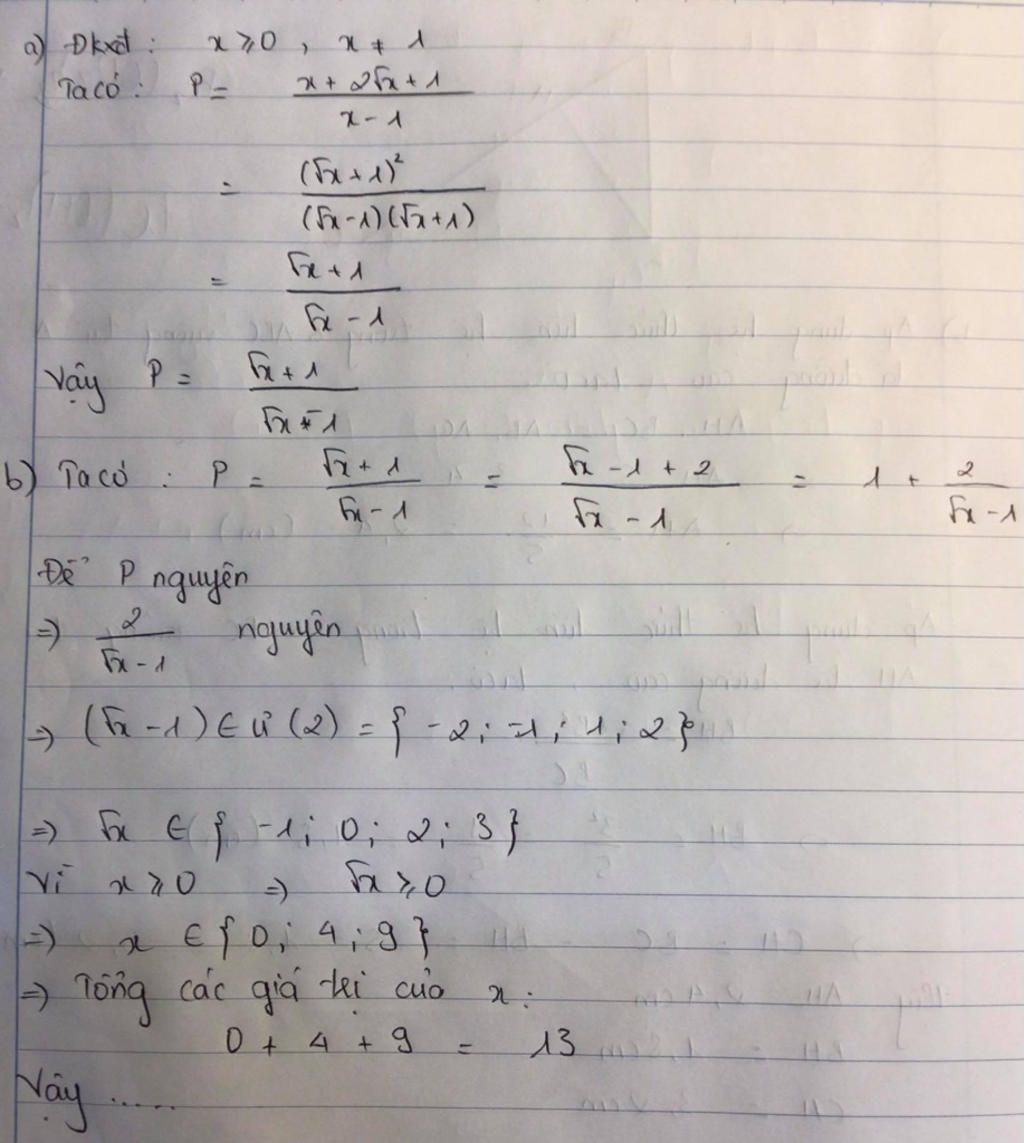 a) Đkxđ : x ⩾ 0 , x ≠ 1
Ta có : P = (x + 2√x + 1)/(x - 1)
= (√x + 1)²/((√x - 1)(√x + 1))
= (√x + 1)/(√x - 1)
Vậy P = (√x + 1)/(√x - 1)
b) Ta có : P = (√x + 1)/(√x - 1) = (√x - 1 + 2)/(√x - 1) = 1 + 2/(√x - 1)
Để P nguyên
⇒ 2/(√x - 1) nguyên
⇒ (√x - 1) ∈ Ư (2) = { -2 ; -1 ; 1 ; 2 }
⇒ √x ∈ { -1 ; 0 ; 2 ; 3 }
Vì x ⩾ 0 ⇒ √x ⩾ 0
⇒ x ∈ { 0 ; 4 ; 9 }
⇒ Tổng các giá trị của x :
0 + 4 + 9 = 13
Vậy ......